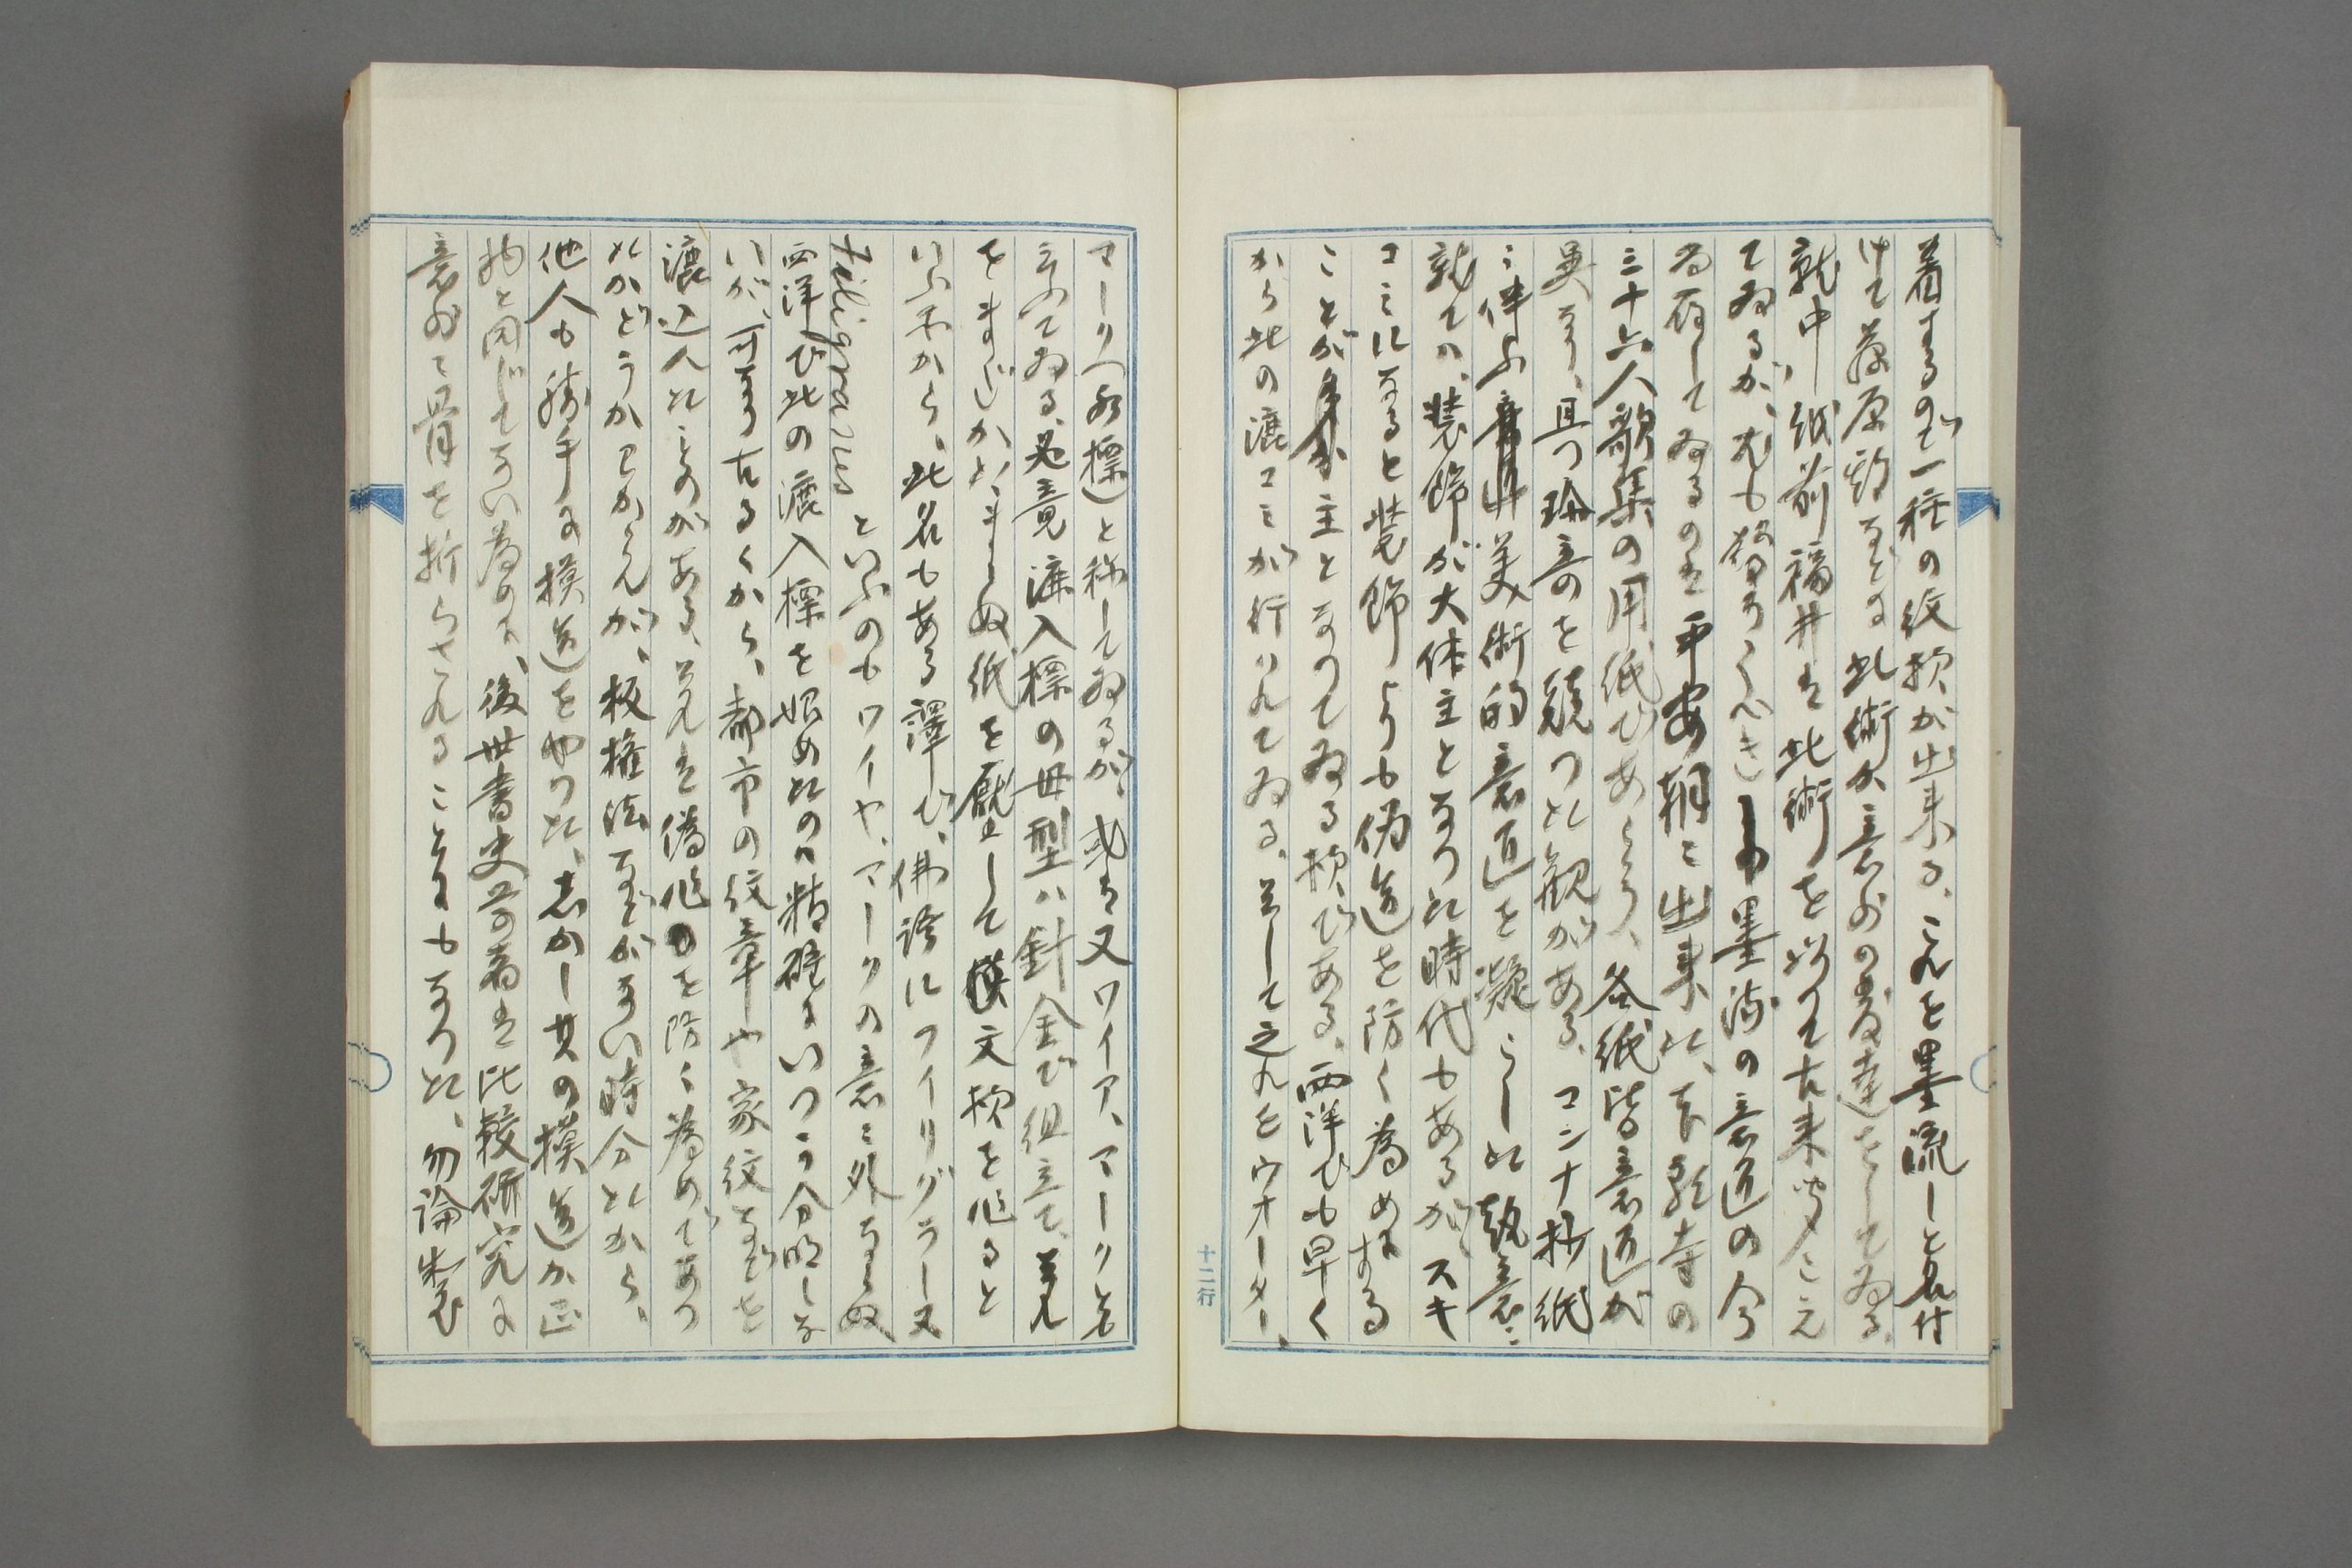 着するので一種の紋様が出来る、これを墨流しと名付
けて藤原期などは此術が意外の発達をしてゐる、
就中越前福井は此術を以つて古来聞こえ
てゐるが、尤も驚ろくべき墨流の意匠の今
尚存してゐるのは平安朝に出来た、本願寺の
三十六人歌集の用紙であらう、各紙皆意匠が
異なり、且つ珍奇を競つた観がある、コンナ抄紙
に伴ふ美術的意匠を凝らした熱意に
就ては、装飾が大体主となつた時代もあるが、スキ
コミになると装飾よりも偽造を防ぐ為めにする
ことが主となつてゐる様である、西洋でも早く
から此の漉コミが行はれてゐる、そして之れをウオーター、
マーク(水標)と称してゐるが、或は又ワイア、マークとも
云つてゐる、畢竟漉入標の母型は針金で組立て、それ
をまじかにまゝぬ紙を圧して文様を作ると
いふ所から、此名もある譯で、佛語にフイリグラーヌ
filigranes といふのもワイヤ、マークの意に外ならぬ
西洋で此の漉入標を始めたのは精確にいつか分明しな
いが、可なり古るくから、都市の紋章や家紋などを
漉込んだものがある、それは偽作を防ぐ為めであつ
たかどうか ワからんが、板権法などがない時分だから、
他人も勝手に模造をやつた、しかし其の模造が正
物と同じでない為めに、後世書史学者は比較研究に
意外に骨を折らさるゝことにもなつた、勿論製
十二行